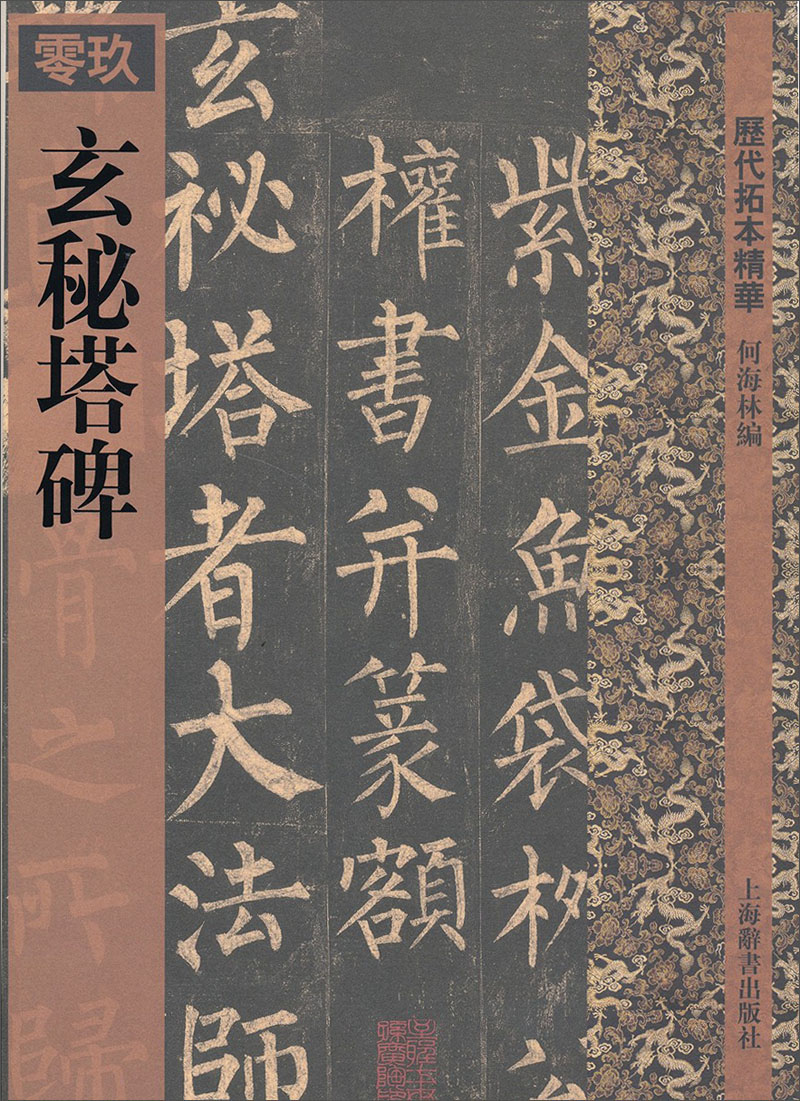 歷代拓本精華
何海林編
上海辭書出版社
紫金魚袋柳公
權書并篆額
玄祕塔者大法師
零玖
玄秘塔碑
骨之所歸